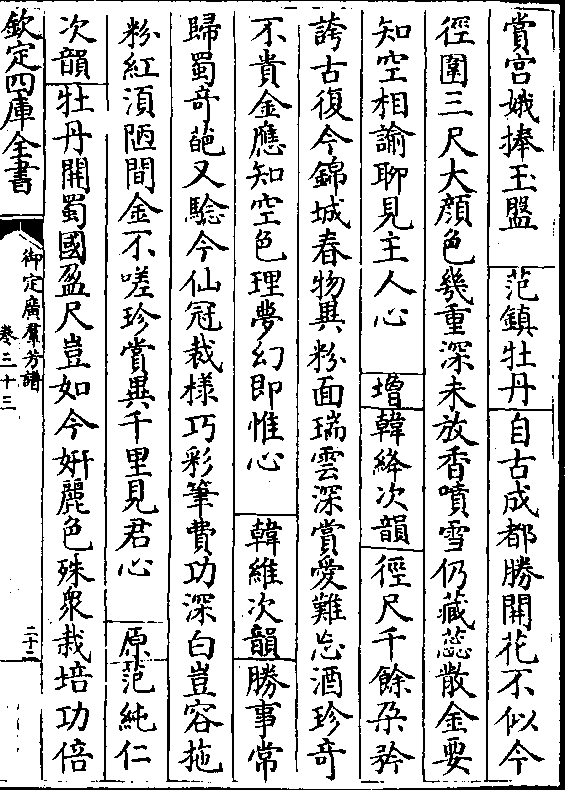 賞宮娥捧玉盤　范鎮牡丹自古成都勝開花不似今
徑圍三尺大顔色幾重深未放香噴雪仍藏蕊散金要
知空相諭聊見主人心　增韓絳次韻徑尺千餘朶矜
誇古復今錦城春物異粉面瑞雲深賞愛難忘酒珍奇
不貴金應知空色理夢幻即惟心　韓維次韻勝事常
歸蜀奇葩又驗今仙冠裁樣巧彩筆費功深白豈容拖
粉紅湏陋間金不嗟珍賞異千里見君心　原范純仁
次韻牡丹開蜀國盈尺豈如今妍麗色殊衆栽培功倍
欽定四庫全書
御定廣羣芳譜
卷三十三
二十二